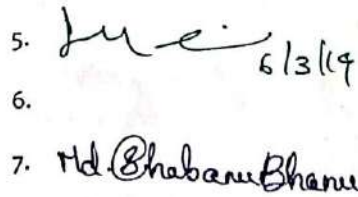 5. 6/3/19
6.
7. Md. Shabanu Bhanu